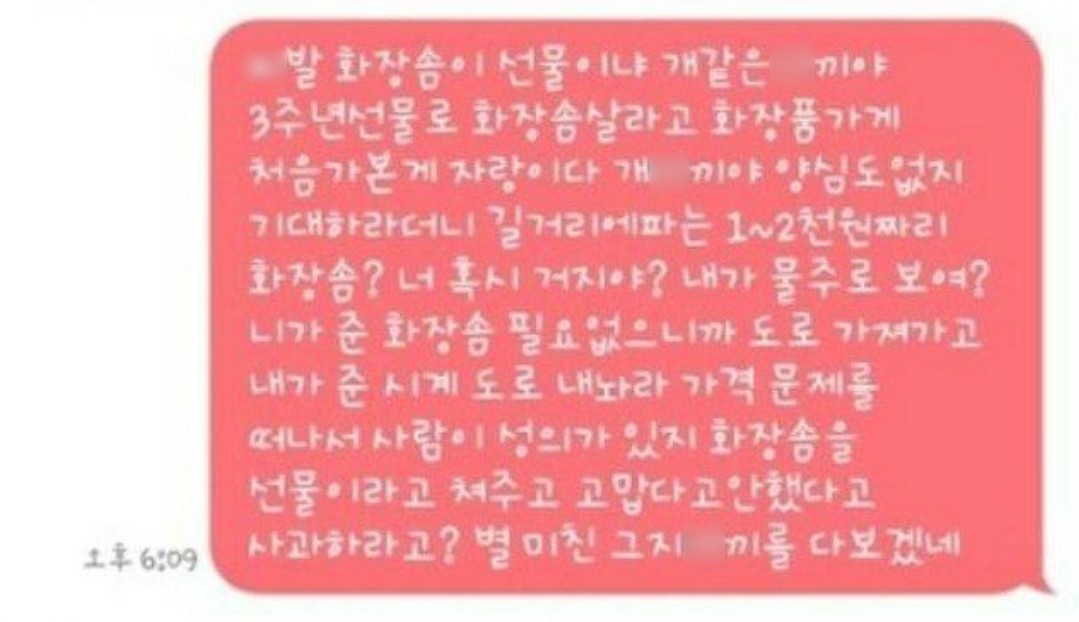 발 화장솜이 선물이냐 개같은 끼야
3주년선물로 화장솜살라고 화장품가게
처음가본게 자랑이다 개 끼야 양심도없지
기대하라더니 길거리에파는 1~2천원짜리
화장솜? 너 혹시 거지야? 내가 물주로 보여?
니가 준 화장솜 필요없으니까 도로 가져가고
내가 준 시계 도로 내놔라 가격 문제를
떠나서 사람이 성의가 있지 화장솜을
선물이라고 쳐주고 고맙다고안했다고
사과하라고? 별 미친 그지 끼를 다보겠네
오후 6:09